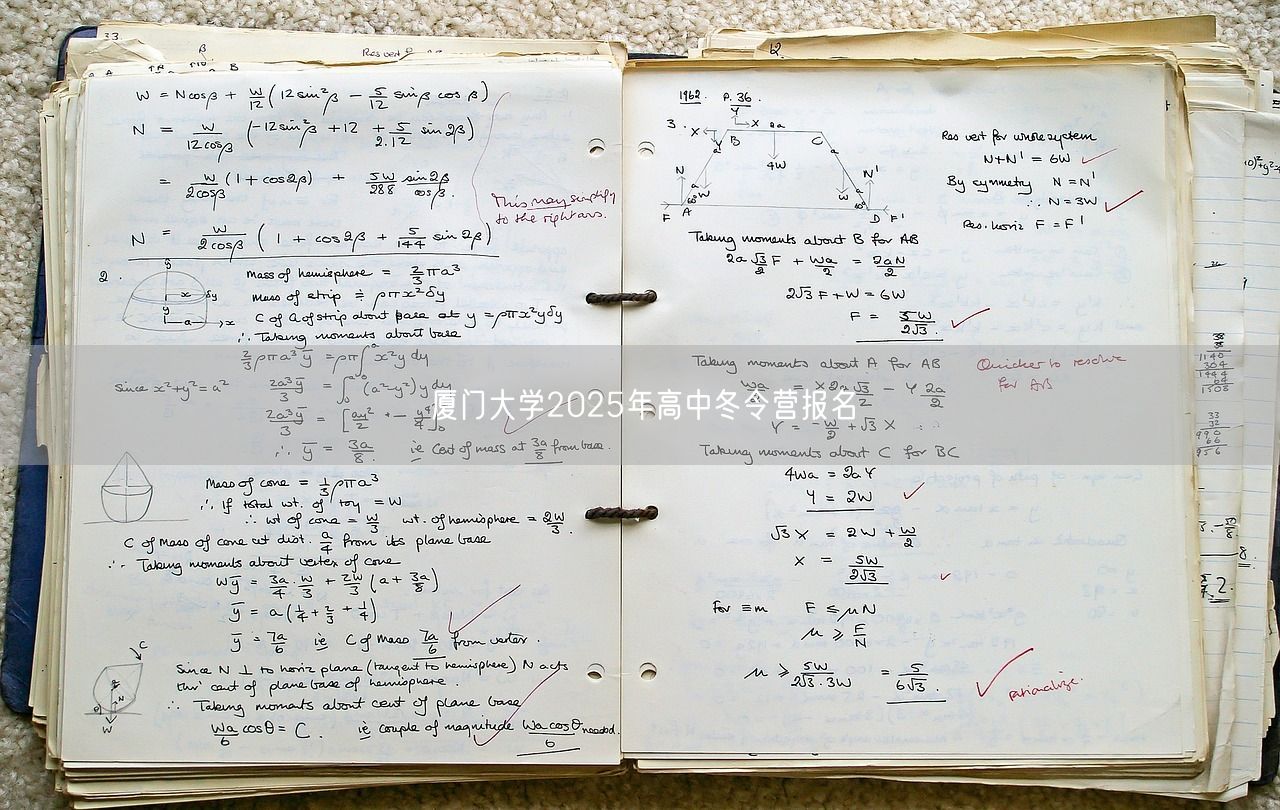 33.
β
Res vert
W = Ncosβ + W/12 (12 sin²β − 5/12 sinβ cosβ)
N = W/12cosβ (−12sin²β + 12 + 5/2.12 sin 2β)
= W/2cosβ (1 + cos2β) + 5W/288 sin2β/cosβ.
This may simplify
to the right ans.
N = W/2cosβ (1 + cos2β + 5/144 sin 2β)
2.
Mass of hemisphere = 2/3 πa³
Mass of strip ≑ ρπx²δy
C of G of strip about base at y = ρπx²yδy
∴ Taking moments about base
2/3 ρπa³ȳ = ρπ∫x²y dy
Since x²+y²=a² 2a³ȳ/3 = ∫(a²−y²)y dy
2a³ȳ/3
∴ ȳ = 3a/8. ie Cent of mass at 3a/8 from base.
Mass of cone = 1/3 ρπa³
∴ If total wt. of toy = W
∴ wt of cone = W/3 wt. of hemisphere = 2W/3.
C of mass of cone at dist. a/4 from its plane base
∴ Taking moments about vertex of cone
Wȳ = 3a/4 . W/3 + 2W/3 (a + 3a/8)
ȳ = a(1/4 + 2/3 + 1/4)
ȳ = 7a/6 ie C of Mass 7a/6 from vertex.
C
Since N ⊥ to horiz plane (tangent to hemisphere) N acts
thro' cent of plane base of hemisphere.
∴ Taking moments about cent of plane base
Wa/6 cosθ = C. ie couple of magnitude Wa cosθ/6 needed.
W
12.
1962 P. 36.
3. X Y X 2a
B C
4W
N N'
W W
F A D F'
Res vert for whole system
N+N' = 6W
By symmetry N = N'
∴ N = 3W
Res. horiz F = F'
Taking moments about B for AB
2a √3/2 F + Wa/2 = 2aN/2
2√3 F + W = 6W
F = 5W/2√3.
Taking moments about A for AB
Quicker to resolve
for AB
= X 2a √3/2 − Y 2a/2
Y = −W/2 + √3 X
厦门大学2025年高中冬令营报名
Taking moments about C for BC
4Wa = 2aY
Y = 2W
√3 X = 2W + W/2
X = 5W/2√3
For ≡m F ≤ μN
μ ≥ F/N
μ ≥ 5W/2√3.3W = 5/6√3.
rationalize.
1140
304
1444
64
1508
33
32
990
66
956